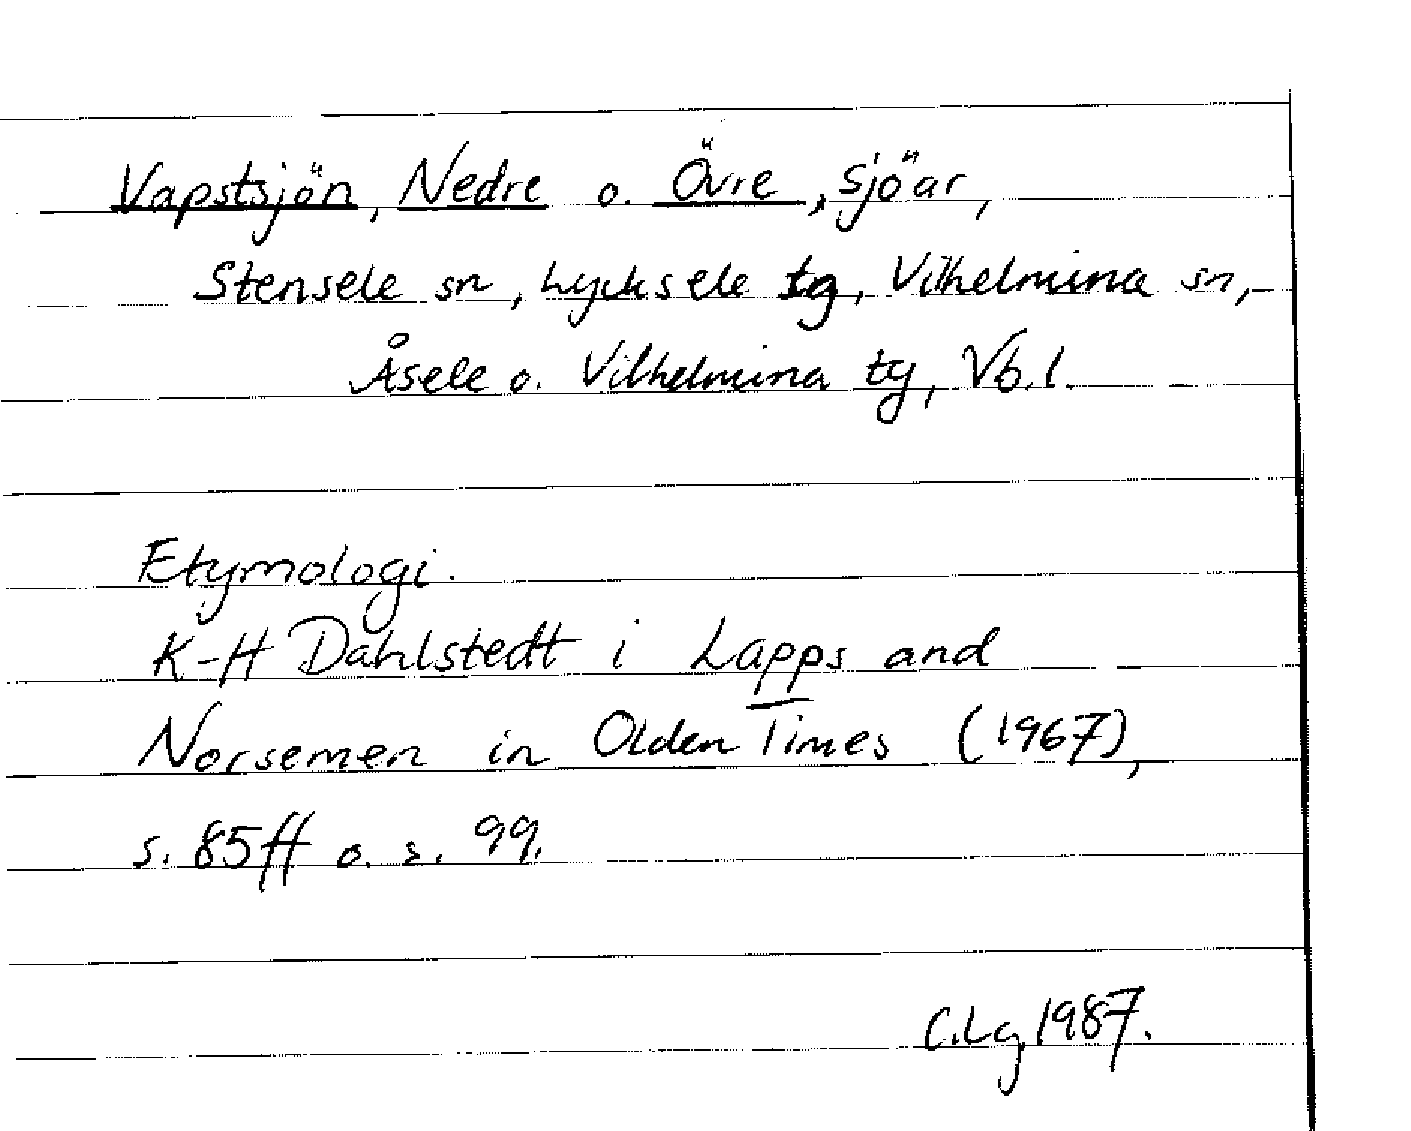 Vapstsjön, Nedre o. Övre, sjöar,
Stensele sn, Lycksele tg, Vilhelmina sn,
Åsele o. Vilhelmina tg, Vb. l.
Etymologi.
K-H Dahlstedt i Lapps and
Norsemen in Olden Times (1967),
s. 85ff o. s. 99.
C.Lg 1987.